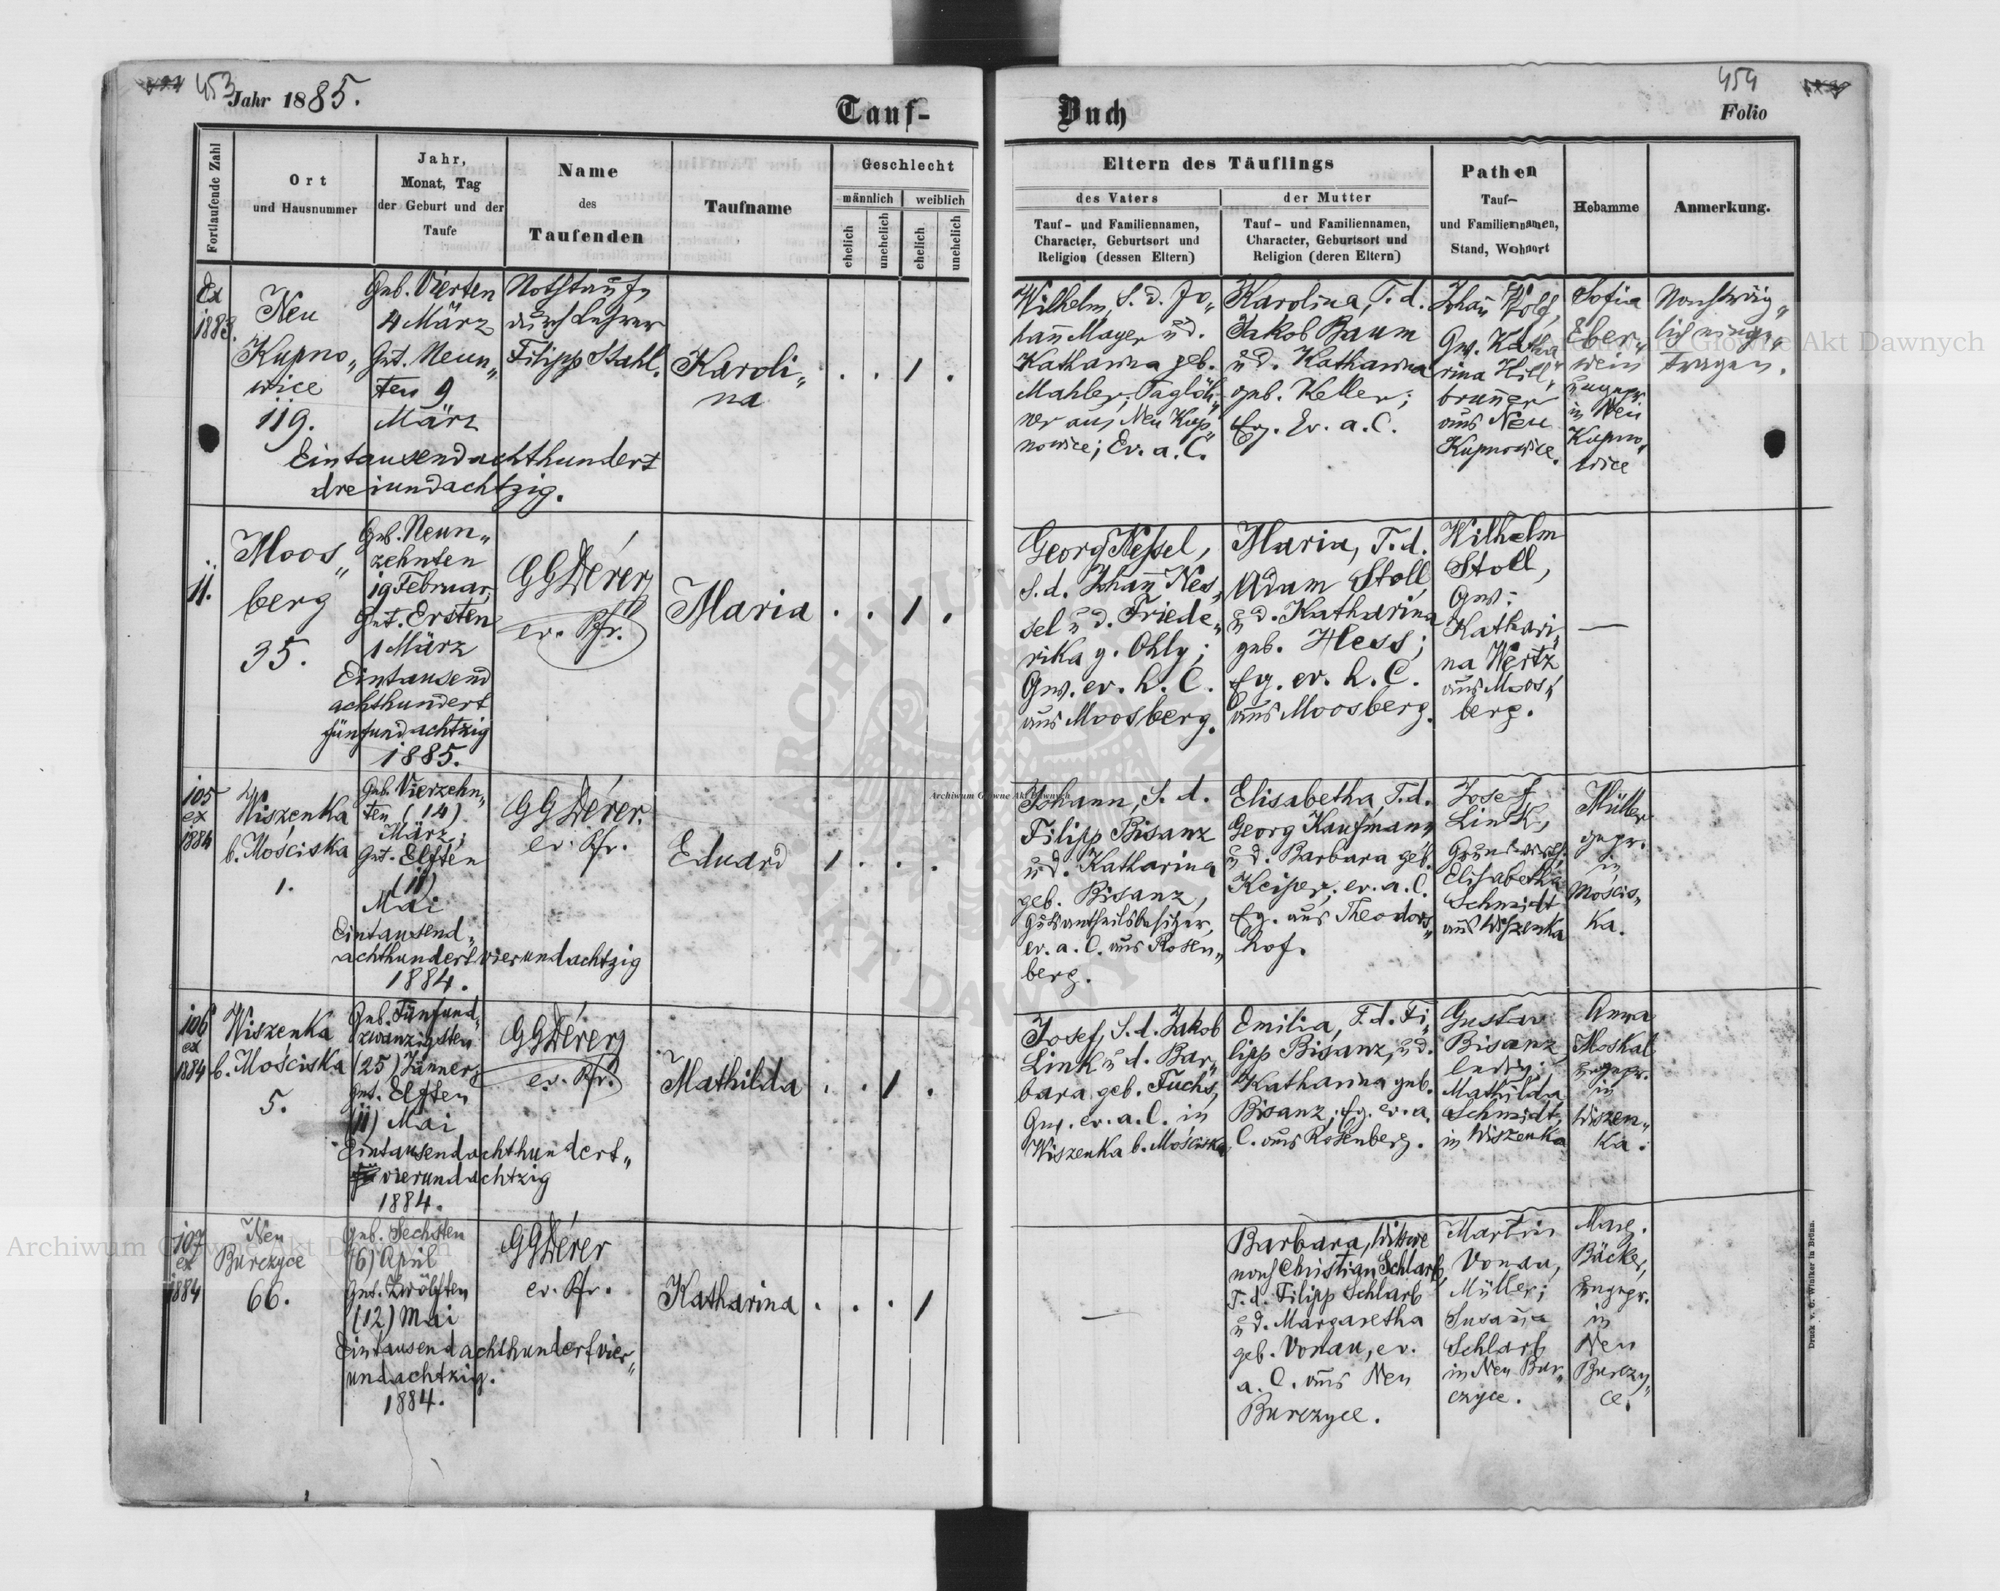 453
Jahr 1885.
Tauf-
Buch
454
Folio
Fortlaufende Zahl
Ort
und Hausnummer
Jahr,
Monat, Tag
der Geburt und der
Taufe
Name
des
Taufenden
Taufname
Geschlecht
männlich
weiblich
ehelich
unehelich
ehelich
unehelich
Eltern des Täuflings
des Vaters
der Mutter
Tauf- und Familiennamen,
Character, Geburtsort und
Religion (dessen Eltern)
Tauf- und Familiennamen,
Character, Geburtsort und
Religion (deren Eltern)
Pathen
Tauf-
und Familiennamen,
Stand, Wohnort
Hebamme
Anmerkung.
Ex
1883.
Neu
Kupno„
wice
119.
Geb. Vierten
4 März
Get. Neun„
ten 9
März
Eintausendachthundert
dreiundachtzig.
Nothtaufe
durch Lehrer
Filipp Stahl.
Karoli„
na
. . 1 .
Wilhelm, S. d. Jo„
hañ Mayer u d.
Katharina geb.
Mahler, Taglöh„
ner aus Neu Kup„
nowice; Ev. a. C.
Karolina, T. d.
Jakob Baum
u d. Katharina
geb. Keller;
Eg. Ev. a. C.
Johañ Wolf,
Gw. Katha
rina Hill„
bruñer
aus Neu
Kupnowice.
Sofia
Eber„
wein
ungepr.
in Neu
Kupno„
wice
Nachträg„
lich einge„
tragen.
11.
Moos„
berg
35.
Geb. Neun„
zehnten
19 Februar,
Get. Ersten
1 März
Eintausend
achthundert
fünfundachtzig
1885.
GGDérer
ev. Pfr.
Maria
. . 1 .
Georg Nessel,
S. d. Johañ Nes„
sel u d. Friede„
rika g. Ohly;
Gw. ev. h. C.
aus Moosberg.
Maria, T. d.
Adam Stoll
u d. Katharina
geb. Hess;
Eg. ev. h. C.
aus Moosberg.
Wilhelm
Stoll,
Gw;
Kathari„
na Wertz
aus Moos„
berg.
—
105
ex
1884
Wiszenka
b. Mościska
1.
Geb. Vierzehn„
ten (14)
März;
Get. Elften
(11)
Mai
Eintausend„
achthundertvierundachtzig
1884.
GGDérer
ev. Pfr.
Eduard
1 . . .
Johann, S. d.
Filipp Bisanz
u d. Katharina
geb. Bisanz,
Gutsantheilsbesitzer,
ev. a. C. aus Rosen„
berg.
Elisabetha, T. d.
Georg Kaufmann
u d. Barbara geb.
Keiper; ev. a. C.
Eg. aus Theodors„
hof.
Josef
Link,
Grundwirth,
Elisabetha
Schmidt
aus Wiszenka
Müller
gepr.
in
Mościs„
ka.
106
ex
1884
Wiszenka
b. Mościska
5.
Geb. Fünfund„
zwanzigsten
(25) Jänner;
Get. Elften
(11) Mai
Eintausendachthundert„
vierundachtzig
1884.
GGDérer
ev. Pfr.
Mathilda
. . 1 .
Josef, S. d. Jakob
Link u d. Bar„
bara geb. Fuchs,
Gw. ev. a. C. in
Wiszenka b. Mościska
Emilia, T. d. Fi„
lipp Bisanz, u d.
Katharina geb.
Bisanz; Eg. ev. a.
C. aus Rosenberg.
Gustav
Bisanz
ledig;
Mathilda
Schmidt,
in Wiszenka
Anna
Moskal
ungepr.
in
Wiszen„
ka.
107
ex
1884
Neu
Burczyce
66.
Geb. Sechsten
(6) April
Get. Zwölften
(12) Mai
Eintausendachthundertvier„
undachtzig.
1884.
GGDérer
ev. Pfr.
Katharina
. . . 1
—
Barbara, Witwe
nach Christian Schlarb,
T. d. Filipp Schlarb
u d. Margaretha
geb. Vonau, ev.
a. C. aus Neu
Burczyce.
Martin
Vonau,
Müller;
Susaña
Schlarb
in Neu Bur„
czyce.
Marg.
Bäcker,
ungepr.
in
Neu
Burczy„
ce.
Druck v. C. Winiker in Brünn.
Archiwum Główne Akt Dawnych
Archiwum Główne Akt Dawnych
Archiwum Główne Akt Dawnych